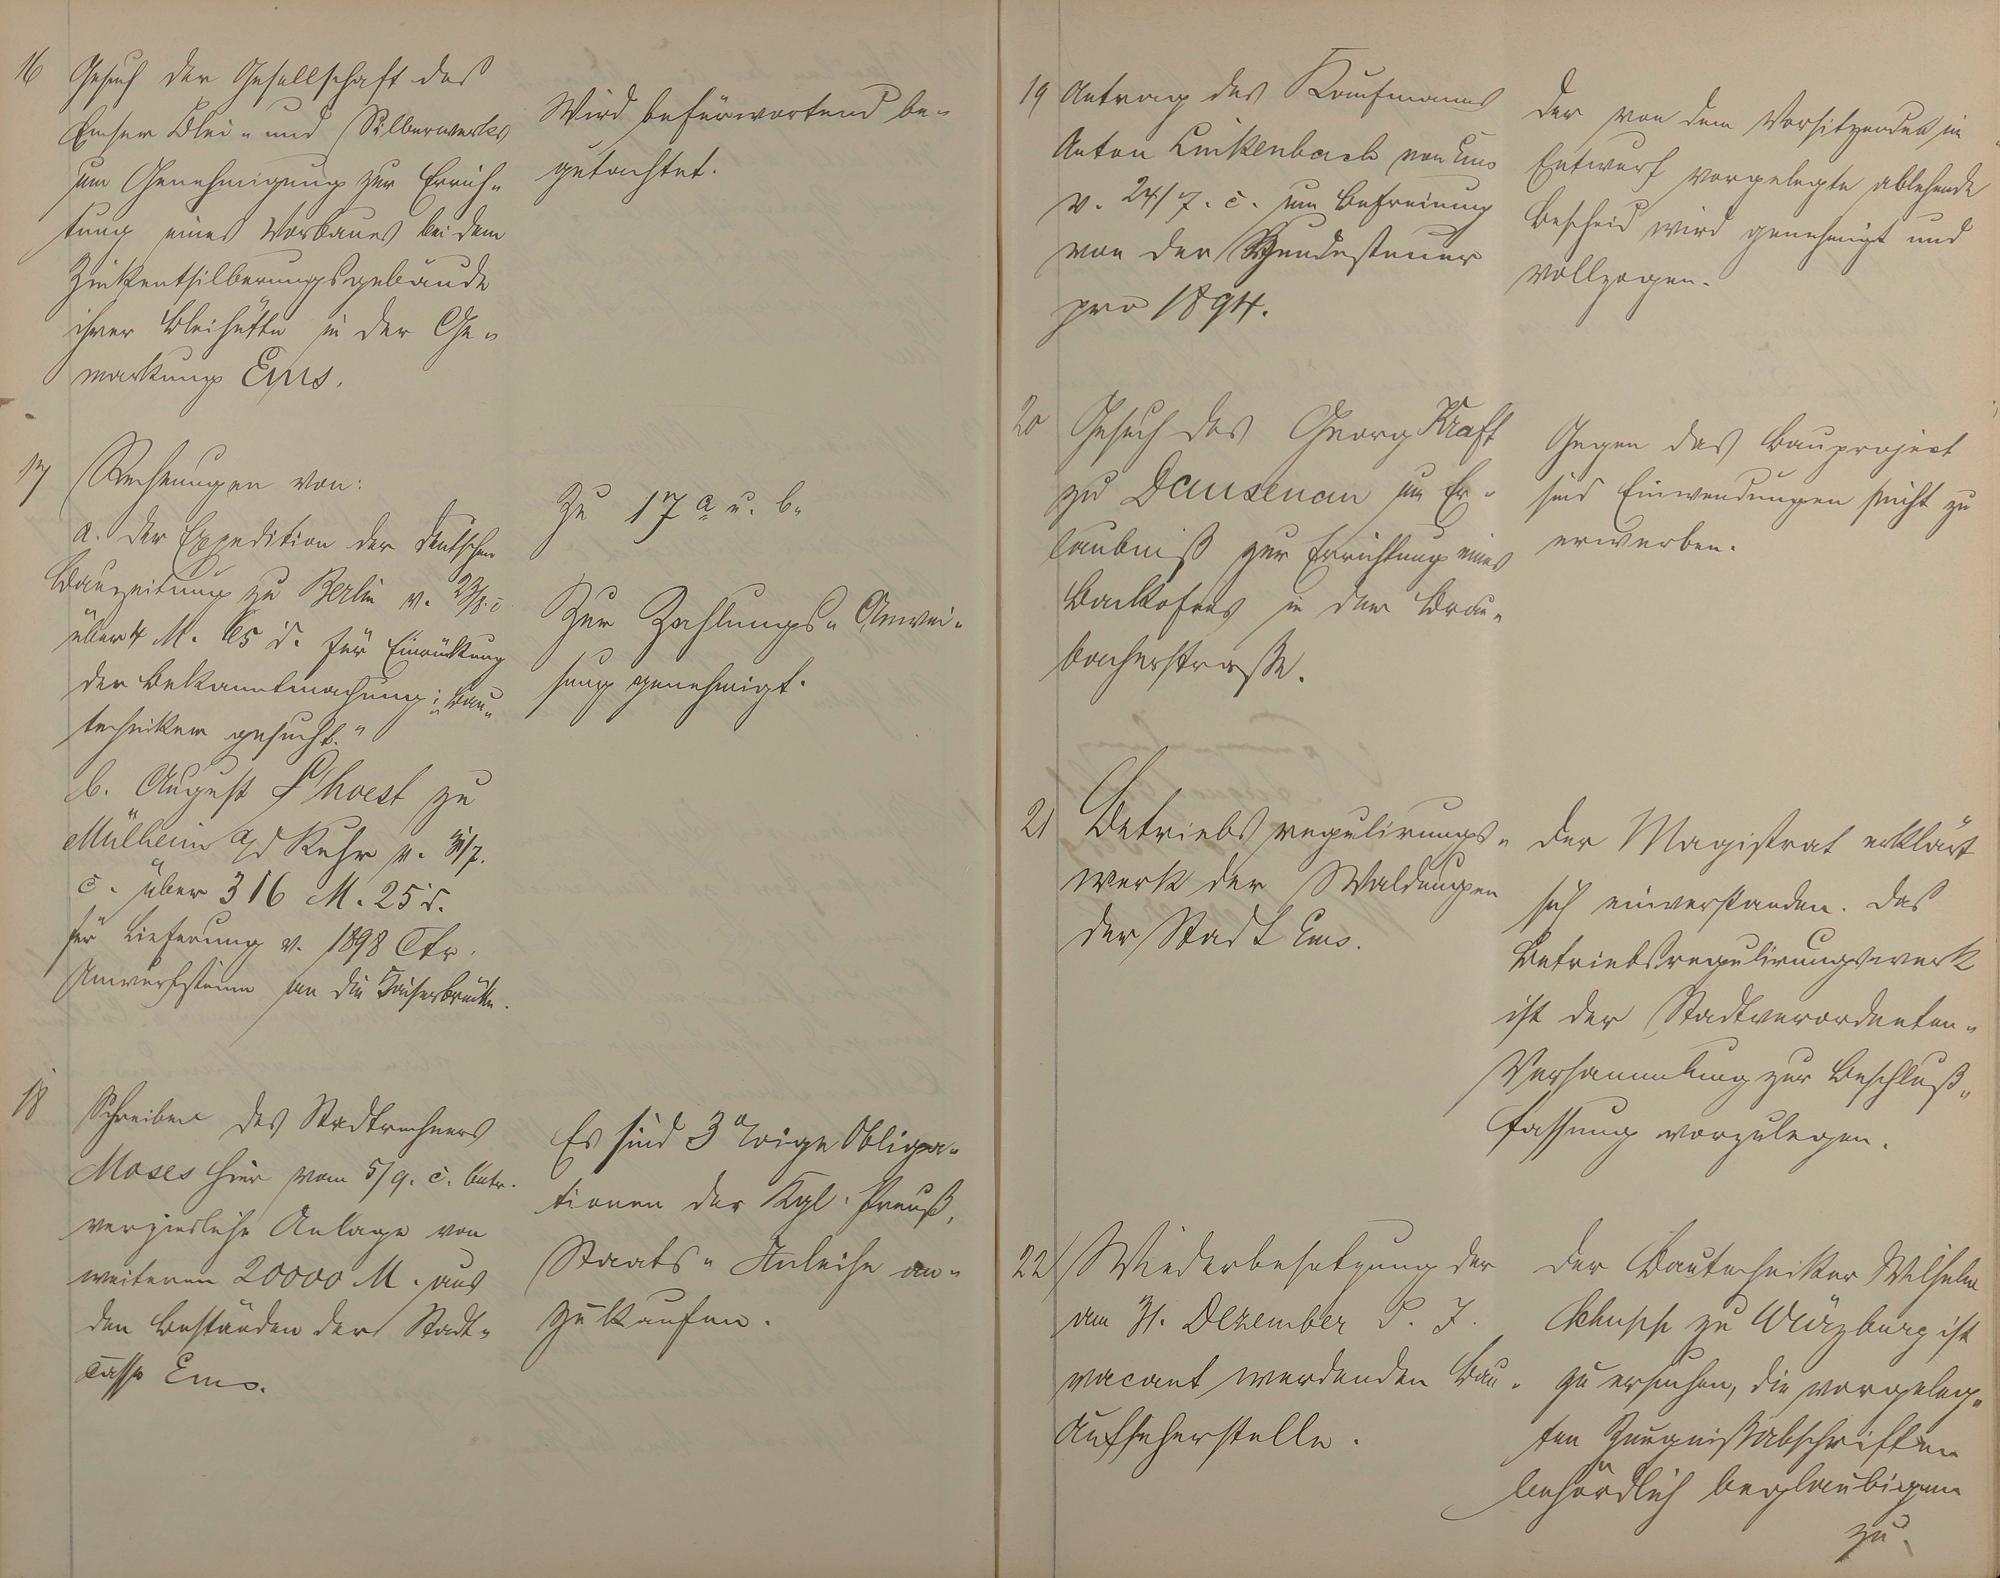 16 Gesuch der Gesellschaft des
Emser Blei- und Silberwerks
um Genehmigung zur Errich-
tung eines Vorbaues bei dem
Zinkentsilberungsgebäude
ihrer Bleihütte in der Ge-
markung Ems.
Wird befürwortend be-
gutachtet.
17 Rechnungen von:
a. der Expedition der deutschen
Bauzeitung zu Berlin v.
über 4 M. 65 d. für Einrückung
der Bekanntmachung: „Bau-
techniker gesucht."
b. August Thoest zu
Mülheim a/d Ruhr v. 31/7.
c. über 316 M. 25 d.
für Lieferung v. 1898 Ctr.
an die Kaiserbrücke.
Zu 17 a u. b.
Zur Zahlungs-Anwei-
sung genehmigt.
18 Schreiben des Stadtrechners
Moses hier vom 5/9. c. betr.
verzinsliche Anlage von
weiteren 20000 M. aus
den Beständen der Stadt-
casse Ems.
Es sind 3 %ige Obliga-
tionen der Kgl. Preuß.
Staats-Anleihe an-
zukaufen.
19 Antrag des Kaufmanns
Anton Linkenbach von Ems
v. 24/7. c. um Befreiung
von der Hundesteuer
pro 1894.
Der von dem Vorsitzenden im
Entwurf vorgelegte ablehende
Bescheid wird genehmigt und
vollzogen.
20 Gesuch des Georg Kraft
zu Dausenau um Er-
laubniß zur Errichtung eines
Backofens in der Brau-
bacherstraße.
Gegen das Bauproject
sind Einwendungen nicht zu
erwerben.
21 Betriebsregulirungs-
werk der Waldungen
der Stadt Ems.
Der Magistrat erklärt
sich einverstanden. Das
Betriebsregulirungswerk
ist der Stadtverordneten-
Versammlung zur Beschluß-
fassung vorzulegen.
22 Wiederbesetzung der
am 31. Dezember d. J.
vacant werdenden Bau-
Aufseherstelle.
Der Bautechniker Wilhelm
zu Würzburg ist
zu ersuchen, die vorgeleg-
ten Zeugnißabschriften
behördlich beglaubigen
zu